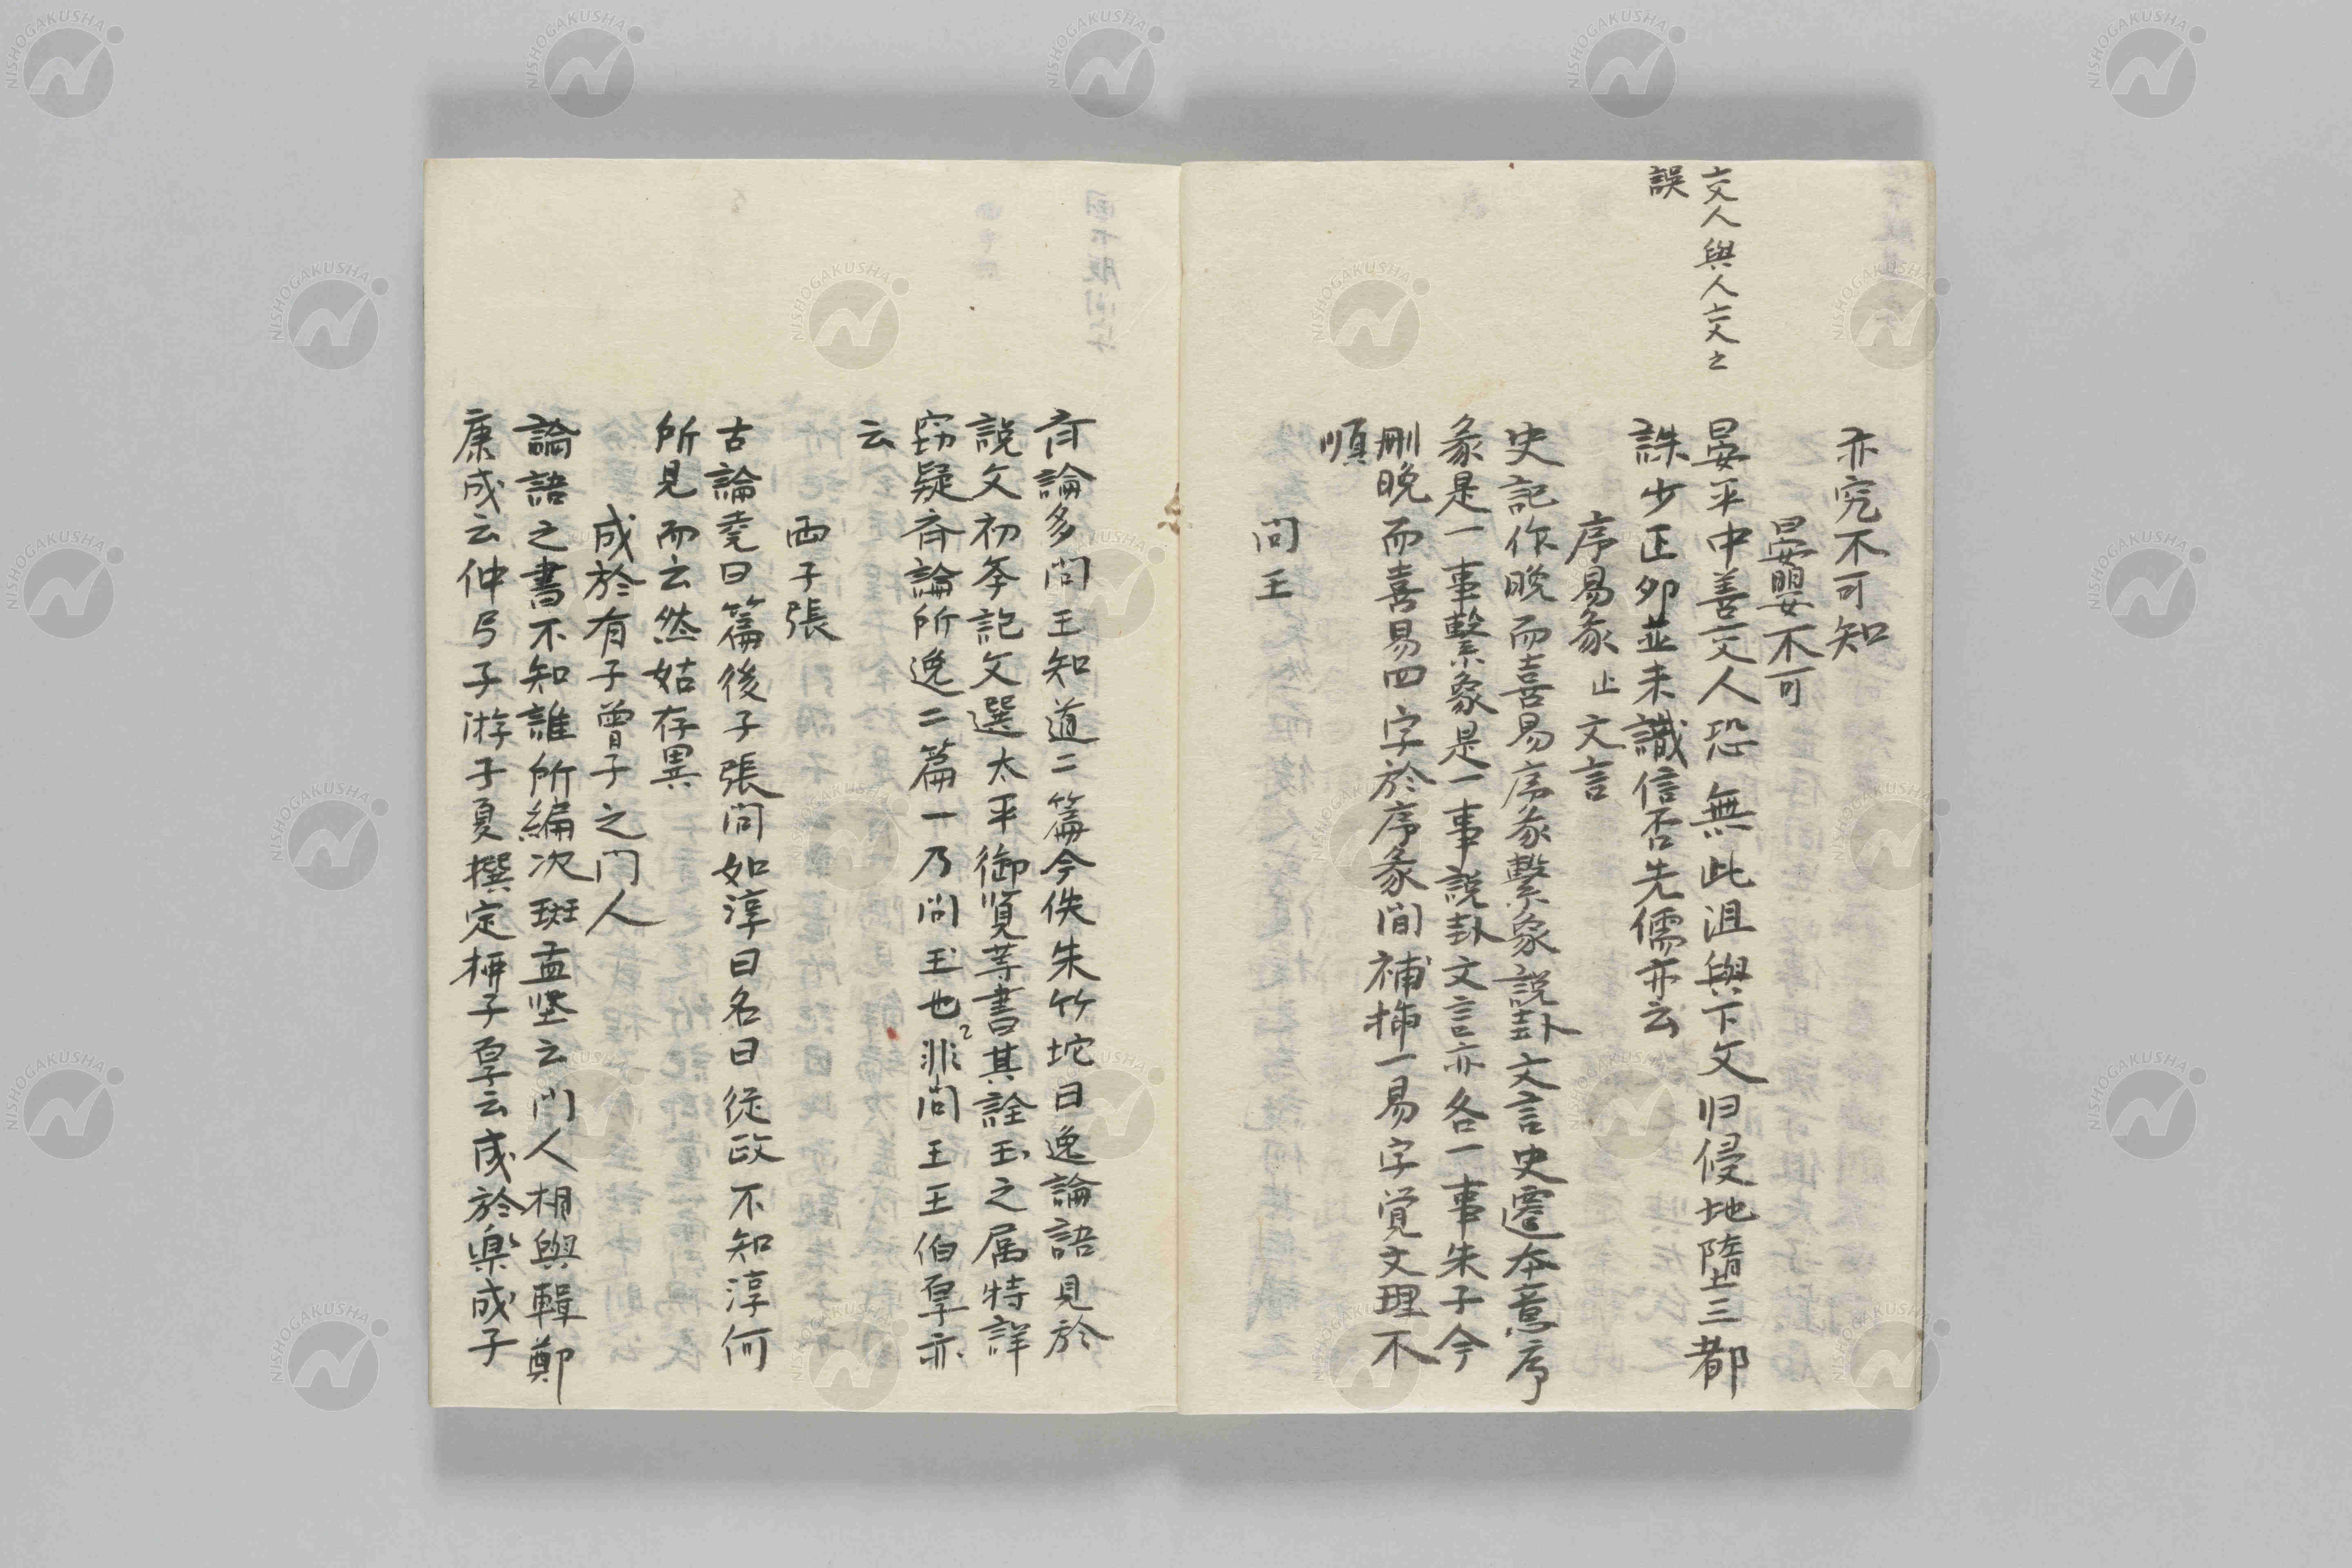 文人與人文之
誤
亦究不可知
晏嬰不可
晏平中善文人恐無此沮與下文归侵地墮三都
誅少正卯並未識信否先儒亦云
序易彖止文言
史記作晚而喜易序彖繫象說卦文言史遷本意序
彖是一事繫象是一事說卦文言亦各一事朱子今
刪晚而喜易四字於序彖間補揷一易字覚文理不
順
問王
斉論多問王知道二篇今佚朱竹垞曰逸論語見於
說文初學記文選太平御覧等書其詮玉之属特詳
窃疑斉論所逸二篇一乃問玉也非問王王伯厚亦
云
両子張
古論堯曰篇後子張問如淳曰名曰従政不知淳何
所見而云然姑存異
成於有子曾子之門人
論語之書不知誰所編次班孟堅云門人相與輯鄭
康成云仲弓子游子夏撰定柳子厚云成於楽成子